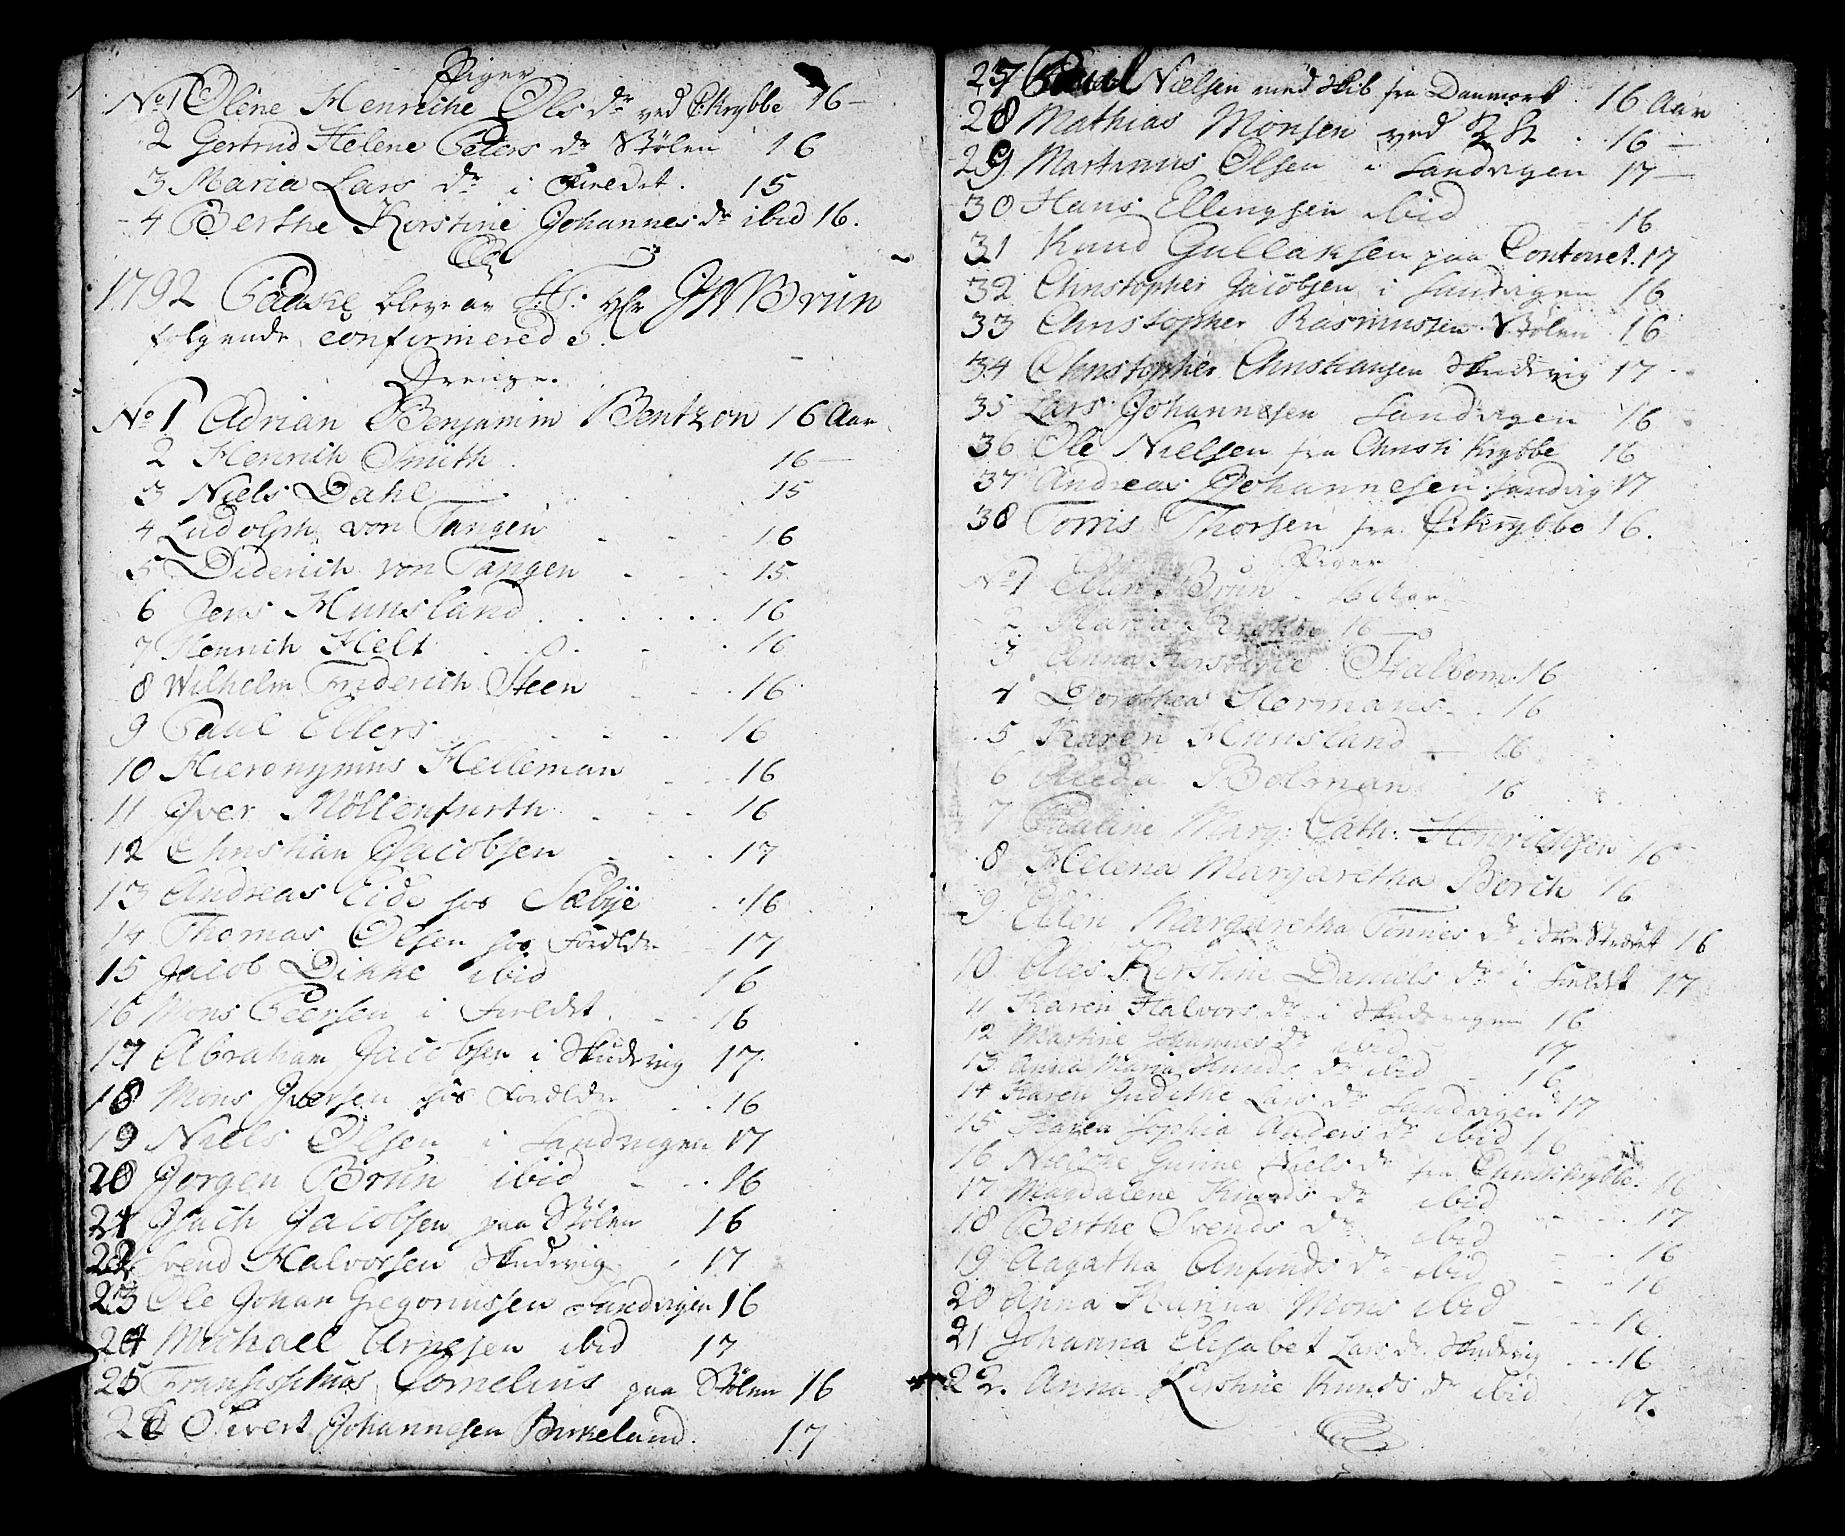 Piger
No 1 Olene Henriche Ols dr ved C: Krybbe 16
2 Gertrud Helene Peters dr Stølen 16
3 Maria Lars dr i Fieldet. 15
4 Berthe Kirstine Johannes dr ibid 16.
1792 Paaske blev av Hr JN Brun
følgende confirmerede
Drenge.
No 1 Adrian Benjamin Bentzon 16 Aar
2 Henrich Smith 16
3 Niels Dahl 15
4 Ludolph von Tangen 16
5 Diderich von Tangen 15
6 Jens Hunsland 16
7 Henrich Helt 16
8 Wilhelm Friderich Steen 16
9 Paul Ellers 16
10 Hieronymus Heileman 16
11 Jver Möllenfurth 16
12 Christian Jacobsen 17
13 Andreas Eide hos Sæbye 16
14 Thomas Olsen hos Foreldre 17
15 Jacob Dikke ibid 16
16 Mons Peersen i Fieldet. 16
17 Abraham Jacobsen i Skudevig 17
18 Mons Jversen hos Foreldre 16
19 Niels Olsen i Sandvigen 17
20 Jørgen Brun ibid 16
21 Jsach Jacobsen paa Stølen 16
22 Svend Halvorsen Skudevig 17
23 Ole Johan Gregoriussen Sandvigen 16
24 Michael Arnesen ibid 17
25 Cornelius paa Stølen 16
26 Sivert Johannesen Birkeland. 17
27 Paul Nielsen med Skib fra Danmark 16 Aar
28 Mathias Monsen ved 16
29 Martinus Olsen i Sandvigen 17
30 Hans Ellingsen ibid 16
31 Knud Gullaksen paa Contoiret. 17
32 Christopher Jacobsen i Sandvigen 16
33 Christopher Rasmussen Stølen 16
34 Christopher Christiansen Skudevig 17
35 Lars Johannesen Sandvigen 16
36 Ole Nielsen fra Christi Krybbe 16
37 Andreas Johannesen Sandvig 17
38 Torris Thorsen fra C: Krybbe 16.
Piger
No 1 Ellen Brun 16 Aar
2 Maria 16
3 Anna Kirstine Falbom 16
4 Dorothea Hermans 16
5 Karen Hunsland 16
6 Aleda Bolman 16
7 Pauline Marg: Cath: Henrichsen 16
8 Helena Margaretha Berch 16
9 Ellen Margaretha Tonnes dr i 16
10 Ales Kirstine Daniels dr i Fieldet 17
11 Karen Halvors dr i Skudevigen 16
12 Martine Johannes dr ibid 17
13 Anna Maria Knuds dr ibid 16
14 Karen Judithe Lars dr Sandvigen 17
15 Karen Sophia Anders dr ibid 16
16 Gurine Niels dr fra Christi Krybbe. 16
17 Magdalene Knuds dr ibid 17
18 Berthe Svends dr ibid 16
19 Aagatha Anfinds dr ibid 16
20 Anna Karina Mons ibid 16.
21 Johanna Elisabet Lars dr Skudevig 16
22. Anna Kirstine Knuds dr ibid 17.